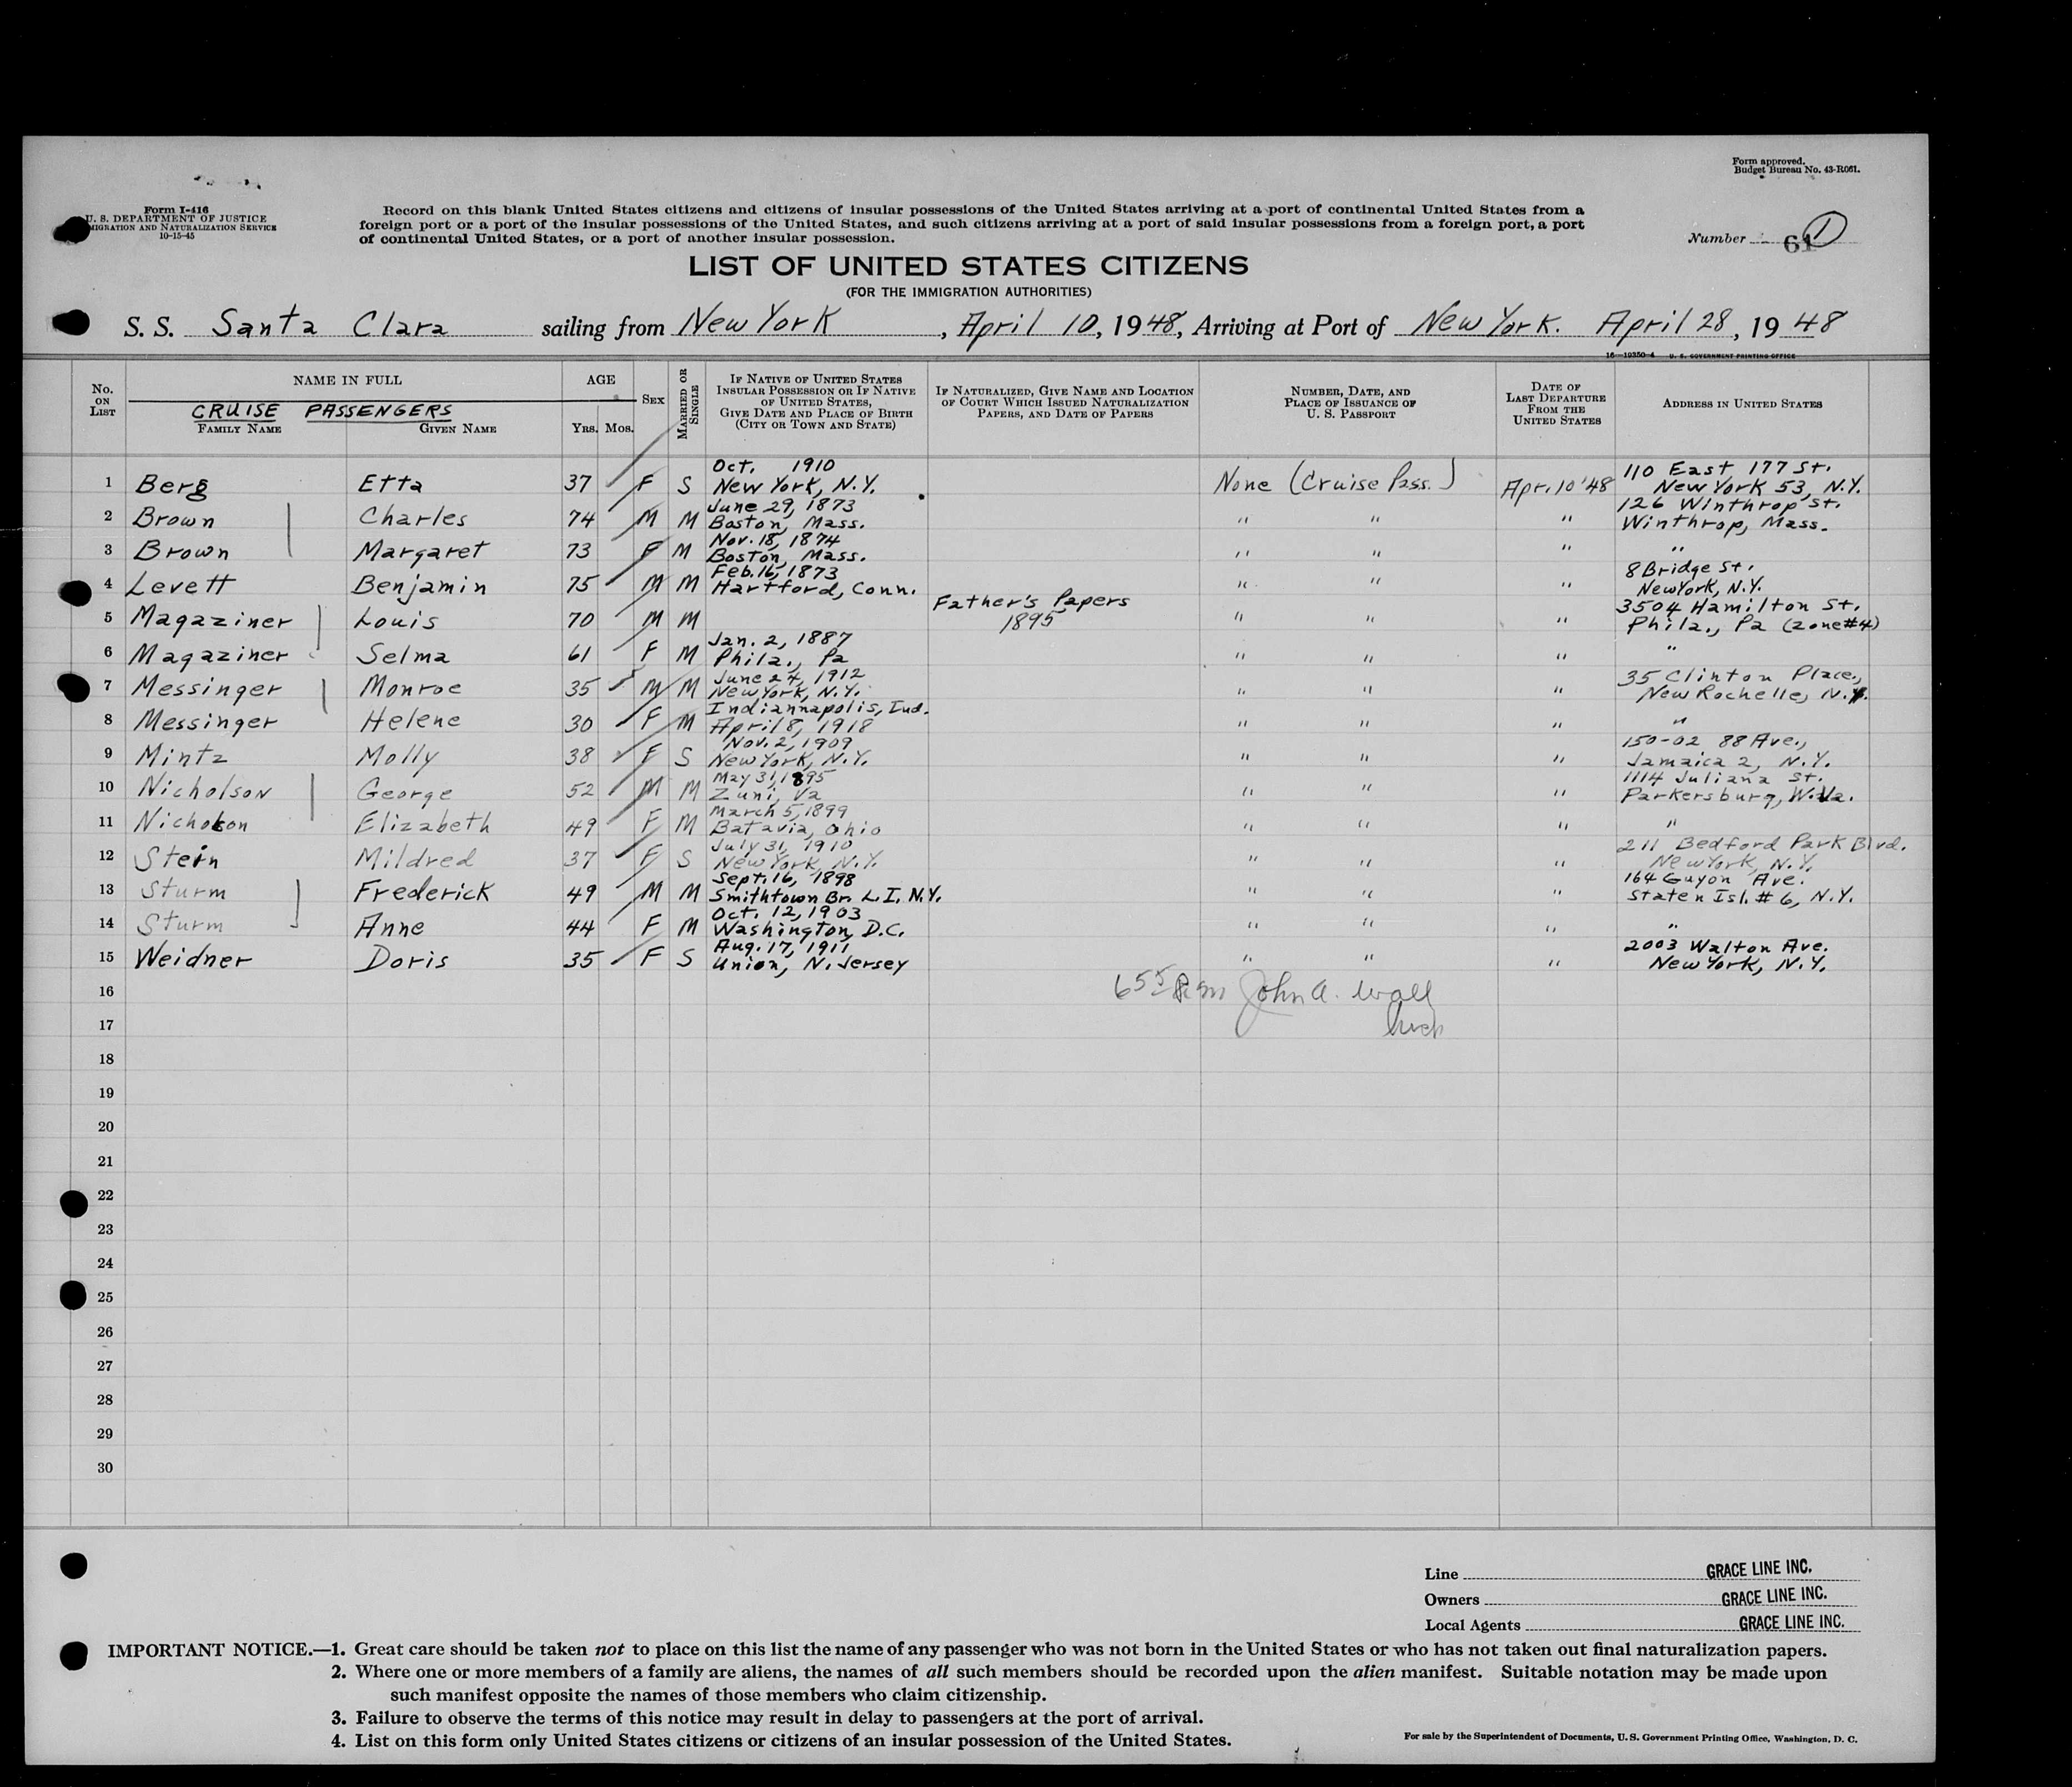 Form approved.
Budget Bureau No. 43-R061.
Form I-416
U. S. DEPARTMENT OF JUSTICE
MIGRATION AND NATURALIZATION SERVICE
10-15-45
Record on this blank United States citizens and citizens of insular possessions of the United States arriving at a port of continental United States from a
foreign port or a port of the insular possessions of the United States, and such citizens arriving at a port of said insular possessions from a foreign port, a port
of continental United States, or a port of another insular possession.
Number 61 1
LIST OF UNITED STATES CITIZENS
(FOR THE IMMIGRATION AUTHORITIES)
S. S. Santa Clara sailing from New York, April 10, 1948, Arriving at Port of New York. April 28, 1948
16—10350-4 U. S. GOVERNMENT PRINTING OFFICE
No. on List
NAME IN FULL
CRUISE PASSENGERS
Family Name Given Name
AGE
Yrs. Mos.
Sex
Married or Single
If Native of United States
Insular Possession or If Native
of United States,
Give Date and Place of Birth
(City or Town and State)
If Naturalized, Give Name and Location
of Court Which Issued Naturalization
Papers, and Date of Papers
Number, Date, and
Place of Issuance of
U. S. Passport
Date of
Last Departure
From the
United States
Address in United States
1 Berg Etta 37 F S Oct. 1910 New York, N.Y. None (Cruise Pass.) Apr. 10 '48 110 East 177 St. New York 53, N.Y.
2 Brown Charles 74 M M June 29, 1873 Boston, Mass. " " " 126 Winthrop St. Winthrop, Mass.
3 Brown Margaret 73 F M Nov. 18, 1874 Boston, Mass. " " " "
4 Levett Benjamin 75 M M Feb. 16, 1873 Hartford, Conn. " " " 8 Bridge St. New York, N.Y.
5 Magaziner Louis 70 M M Father's Papers 1895 " " " 3504 Hamilton St. Phila., Pa (zone #4)
6 Magaziner Selma 61 F M Jan. 2, 1887 Phila., Pa " " " "
7 Messinger Monroe 35 M M June 24, 1912 New York, N.Y. " " " 35 Clinton Place, New Rochelle, N.Y.
8 Messinger Helene 30 F M Indiannapolis, Ind. April 8, 1918 " " " "
9 Mintz Molly 38 F S Nov. 2, 1909 New York, N.Y. " " " 150-02 88 Ave., Jamaica 2, N.Y.
10 Nicholson George 52 M M May 31, 1895 Zuni, Va " " " 1114 Juliana St. Parkersburg, W.Va.
11 Nicholson Elizabeth 49 F M March 5, 1899 Batavia, Ohio " " " "
12 Stein Mildred 37 F S July 31, 1910 New York, N.Y. " " " 211 Bedford Park Blvd. New York, N.Y.
13 Sturm Frederick 49 M M Sept. 16, 1898 Smithtown Br. L.I. N.Y. " " " 164 Guyon Ave. Staten Isl. #6, N.Y.
14 Sturm Anne 44 F M Oct. 12, 1903 Washington, D.C. " " " "
15 Weidner Doris 35 F S Aug. 17, 1911 Union, N. Jersey " " " 2003 Walton Ave. New York, N.Y.
16 John A. Wall
17
18
19
20
21
22
23
24
25
26
27
28
29
30
Line GRACE LINE INC.
Owners GRACE LINE INC.
Local Agents GRACE LINE INC.
IMPORTANT NOTICE.—1. Great care should be taken not to place on this list the name of any passenger who was not born in the United States or who has not taken out final naturalization papers.
2. Where one or more members of a family are aliens, the names of all such members should be recorded upon the alien manifest. Suitable notation may be made upon
such manifest opposite the names of those members who claim citizenship.
3. Failure to observe the terms of this notice may result in delay to passengers at the port of arrival.
4. List on this form only United States citizens or citizens of an insular possession of the United States.
For sale by the Superintendent of Documents, U. S. Government Printing Office, Washington, D. C.